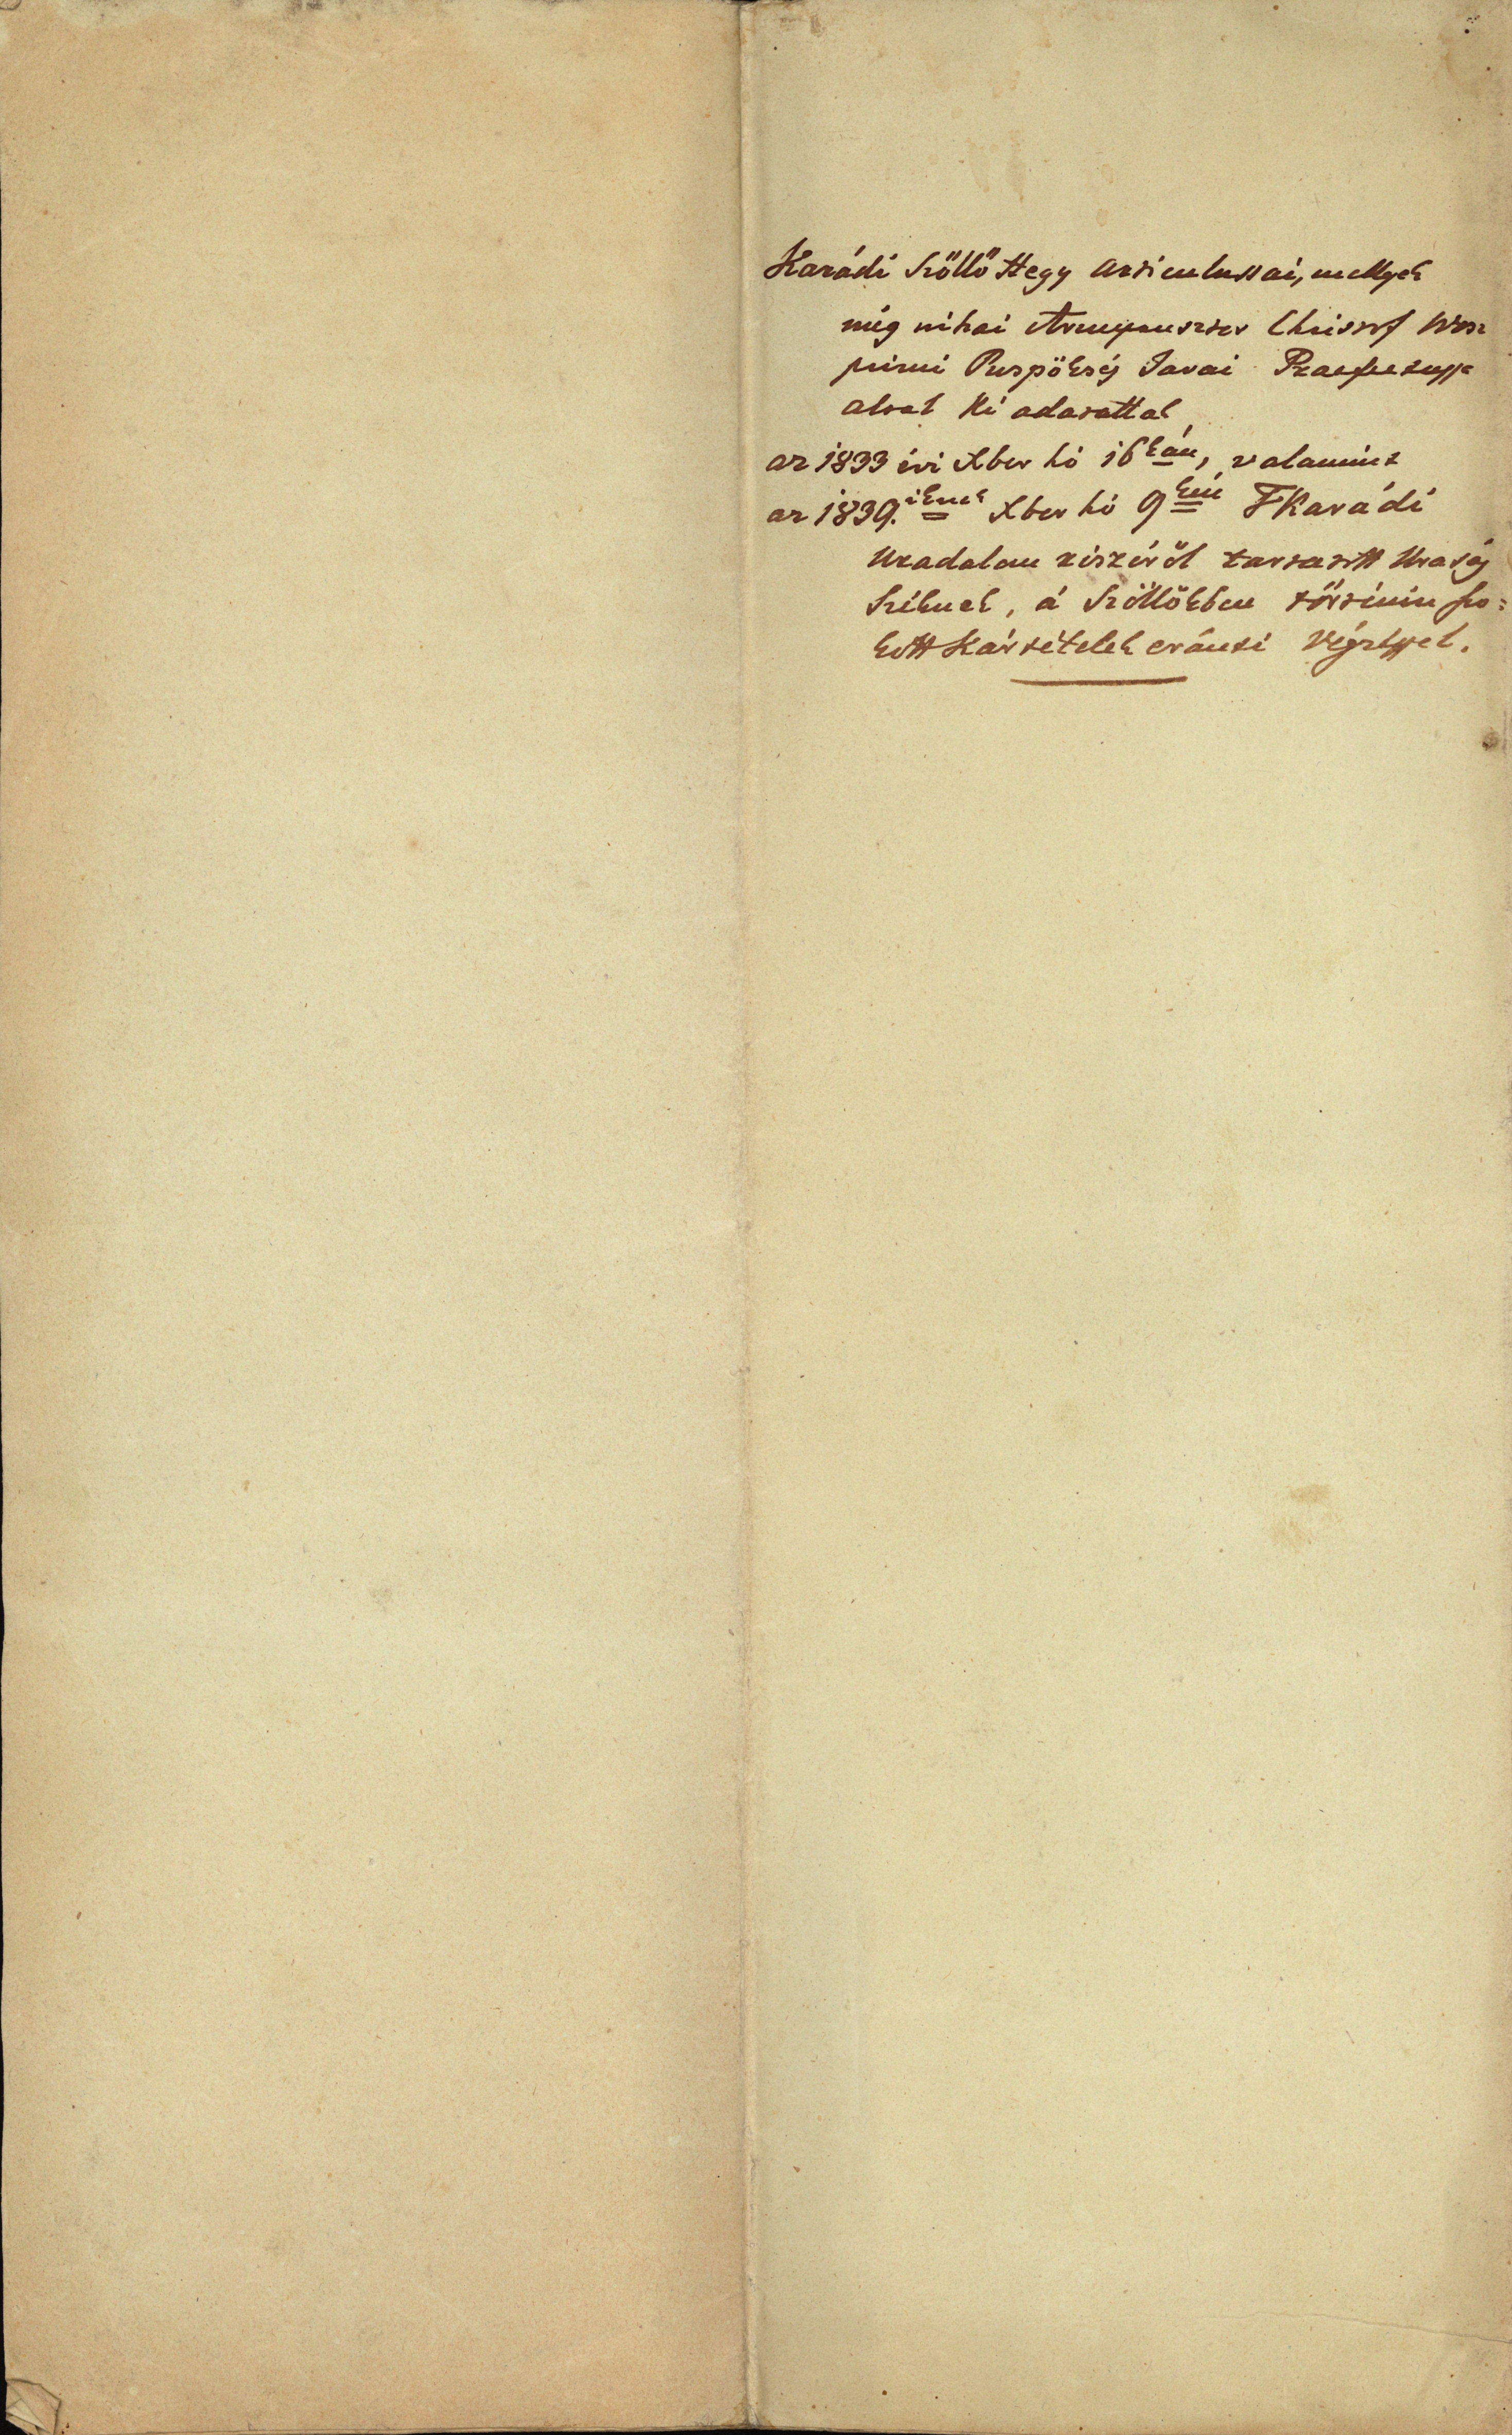 Karádi Szőllő Hegy Articulussai, mellyek
még néhai Christof Wesz
primi Puspökség Javai Praefectussa
által ki adatattak
az 1833 évi Xber hó 16kán, valamint
az 1839.iknek Xber hó 9kéń F Karádi
Uradalom részéről tartatott Uraság
Széknek, á Szőllőkben történin szo=
kott Kártételek eránti Végzéssel.